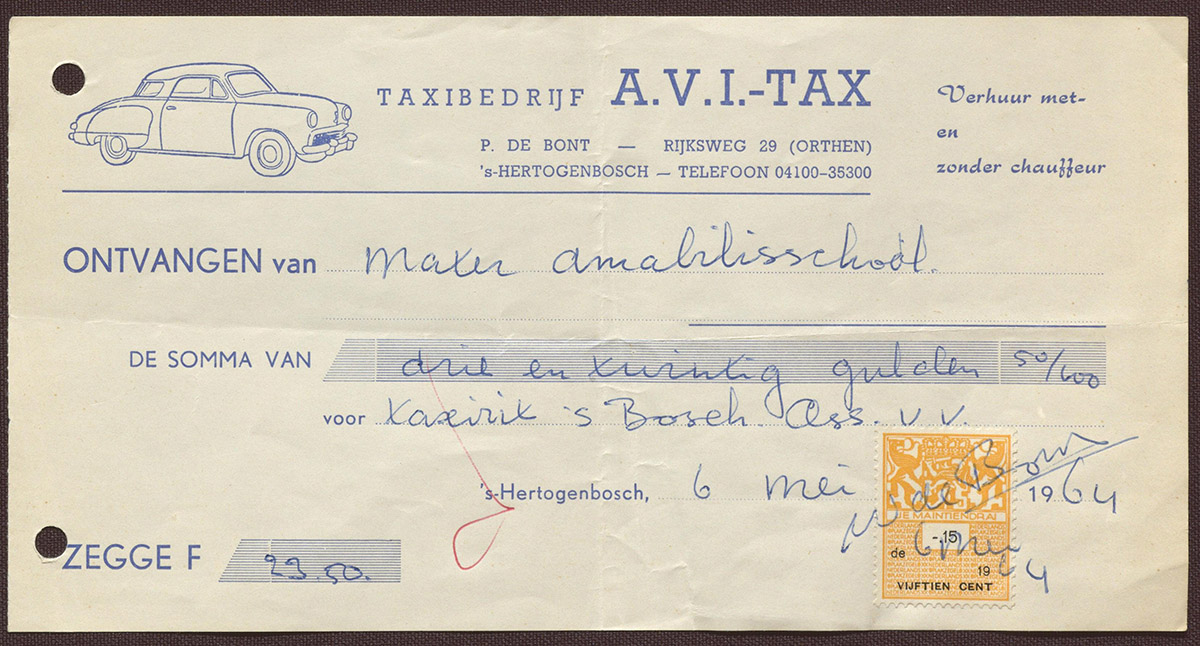 TAXIBEDRIJF A.V.I.-TAX
P. DE BONT — RIJKSWEG 29 (ORTHEN)
's-HERTOGENBOSCH — TELEFOON 04100-35300
Verhuur met-
en
zonder chauffeur
ONTVANGEN van Mater Amabilisschool.
DE SOMMA VAN drie en twintig gulden 50/100
voor taxirit 's Bosch Oss. v.v.
's-Hertogenbosch, 6 mei 1964
de Bont
JE MAINTIENDRAI
-.15
de 6 Mei
1964
VIJFTIEN CENT
ZEGGE F 23.50.